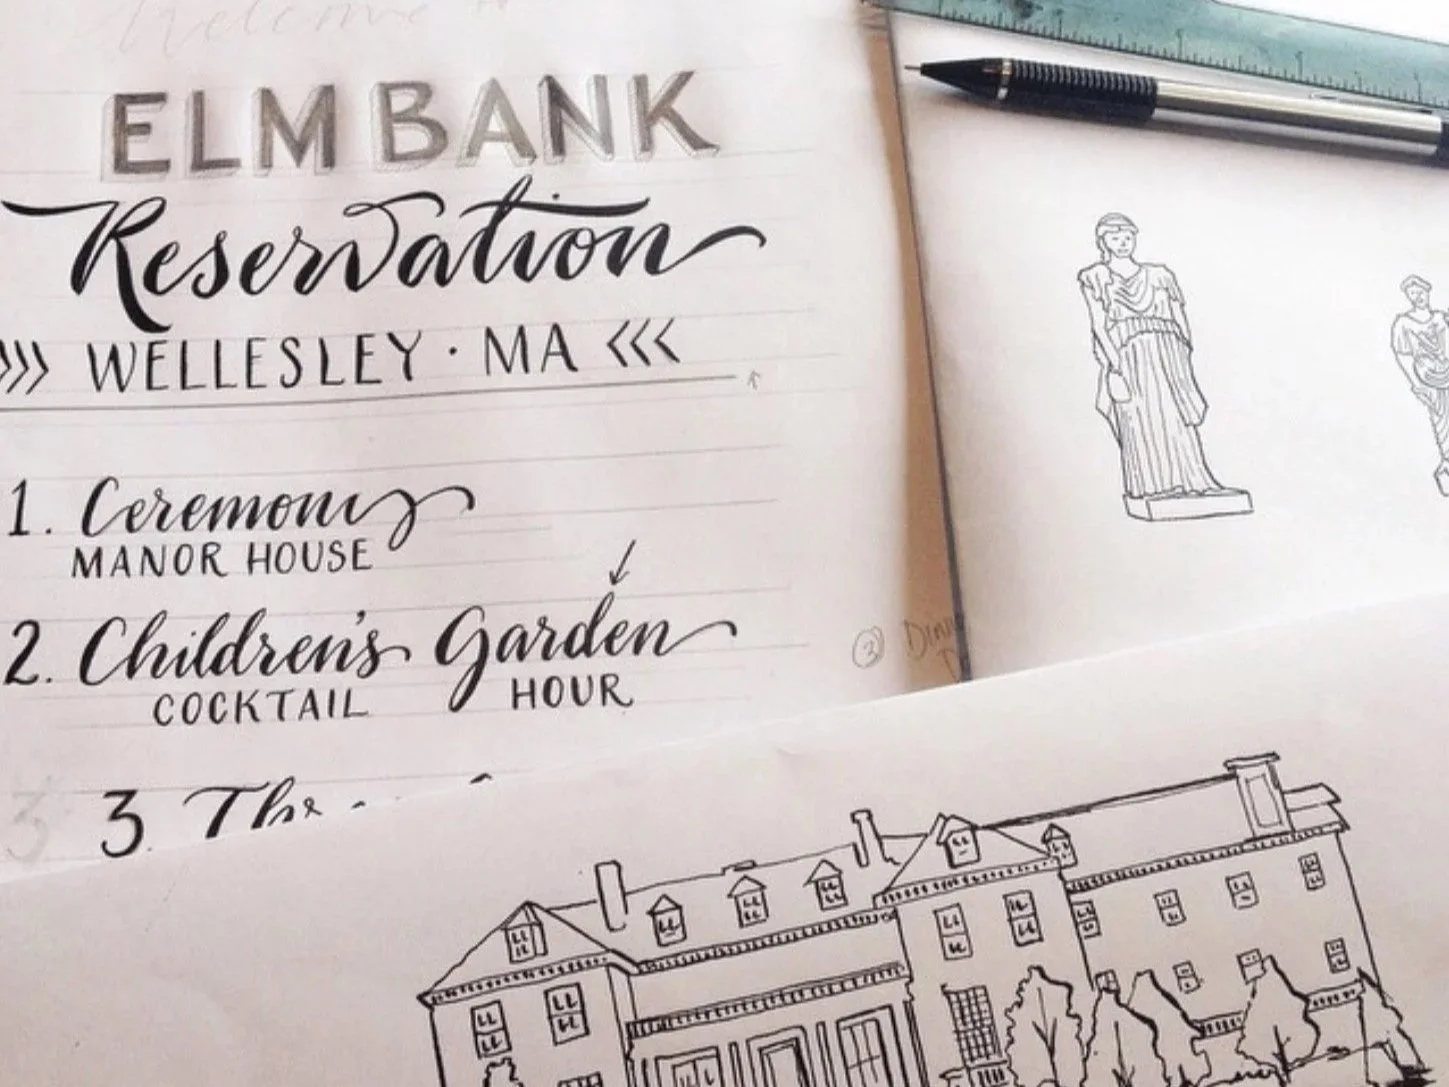 Welcome
ELM BANK
Reservation
WELLESLEY · MA
1. Ceremony
MANOR HOUSE
2. Children's Garden
COCKTAIL HOUR
3
3
2